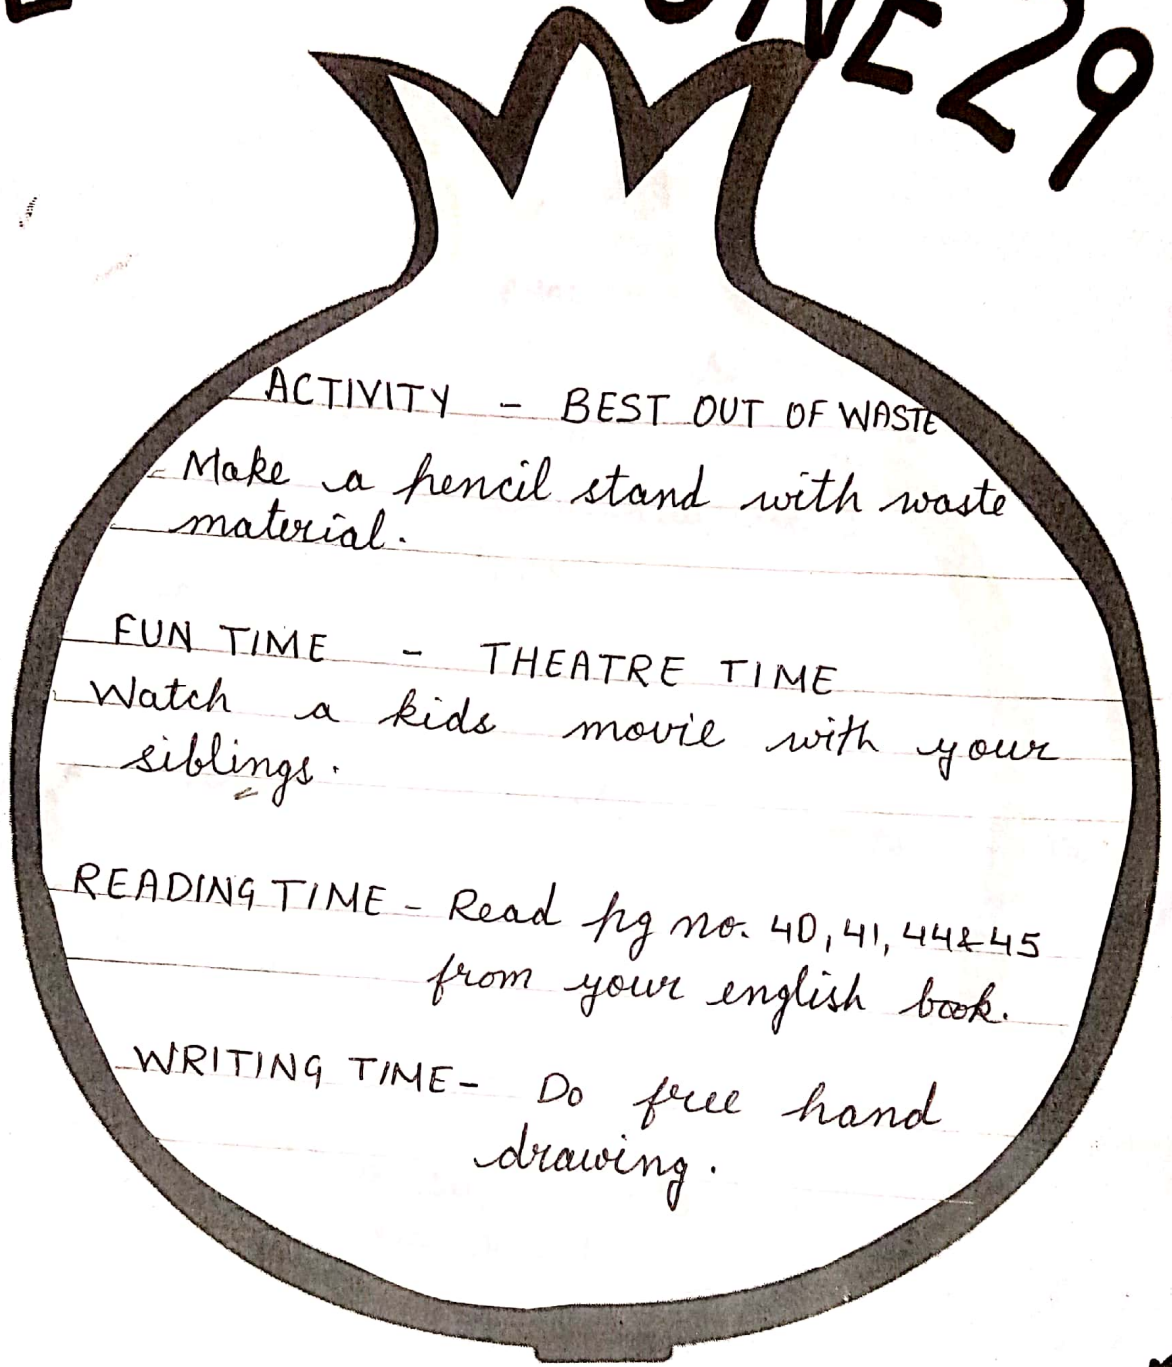 UNE 29
ACTIVITY - BEST OUT OF WASTE
Make a pencil stand with waste
material.
FUN TIME - THEATRE TIME
Watch a kids movie with your
siblings.
READING TIME - Read pg no. 40, 41, 44 & 45
from your english book.
WRITING TIME - Do free hand
drawing.